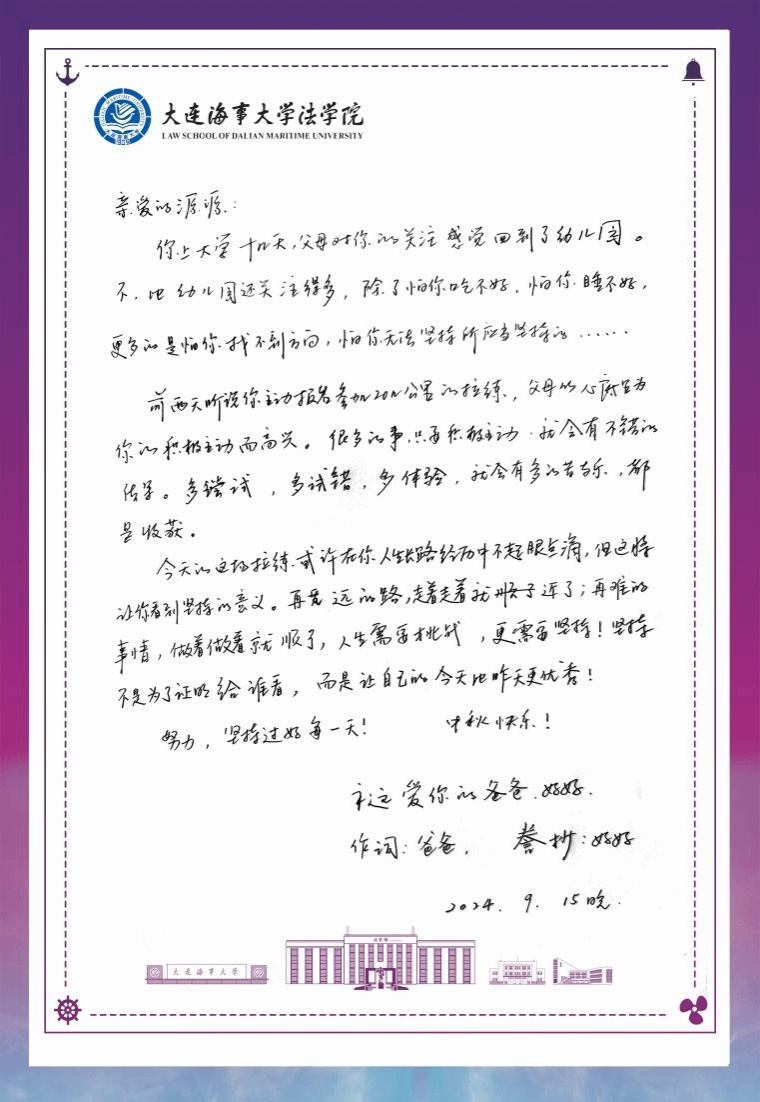 大连海事大学法学院
LAW SCHOOL OF DALIAN MARITIME UNIVERSITY
亲爱的源源:
你上大学十几天,父母对你的关注感觉回到了幼儿园。
不,比幼儿园还关注得多,除了怕你吃不好,怕你睡不好,
更多的是怕你找不到方向,怕你无法坚持所应当坚持的……
前两天听说你主动报名参加20公里的拉练,父母的心底里为
你的积极主动而高兴。很多的事,只要积极主动,就会有不错的
结果。多尝试,多试错,多体验,就会有多的苦与乐,都
是收获。
今天的这场拉练或许在你人生长路经历中不起眼点滴,但这将
让你看到坚持的意义。再 远的路,走着走着就 近了;再难的
事情,做着做着就顺了,人生需要挑战,更需要坚持!坚持
不是为了证明给谁看,而是让自己的今天比昨天更优秀!
努力,坚持过好每一天! 中秋快乐!
永远爱你的爸爸、妈妈.
作词:爸爸, 誊抄:妈妈
2024. 9. 15晚.
大连海事大学